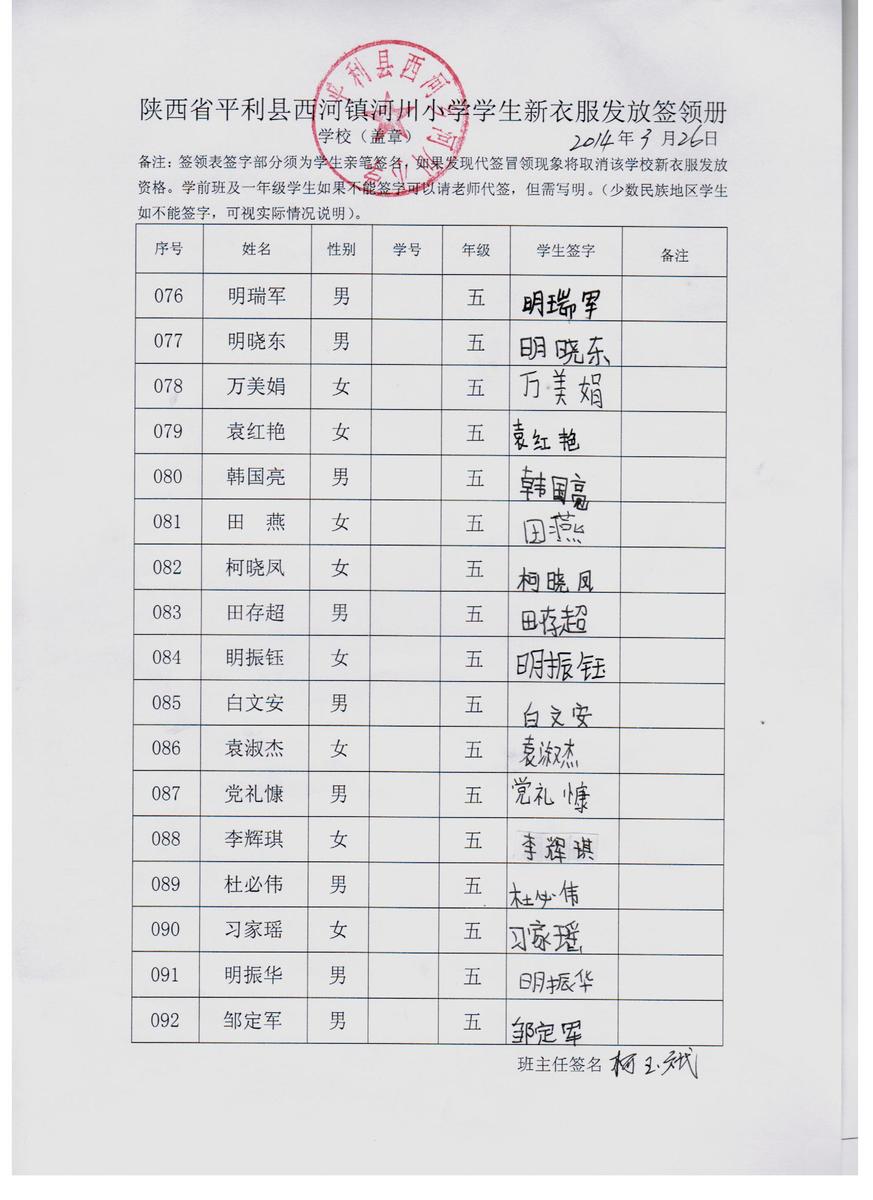 陕西省平利县西河镇河川小学学生新衣服发放签领册
学校（盖章） 2014年3月26日
备注：签领表签字部分须为学生亲笔签名，如果发现代签冒领现象将取消该学校新衣服发放
资格。学前班及一年级学生如果不能签字可以请老师代签，但需写明。（少数民族地区学生
如不能签字，可视实际情况说明）。
序号 姓名 性别 学号 年级 学生签字 备注
076 明瑞军 男 五 明瑞军
077 明晓东 男 五 明晓东
078 万美娟 女 五 万美娟
079 袁红艳 女 五 袁红艳
080 韩国亮 男 五 韩国亮
081 田 燕 女 五 田燕
082 柯晓凤 女 五 柯晓凤
083 田存超 男 五 田存超
084 明振钰 女 五 明振钰
085 白文安 男 五 白文安
086 袁淑杰 女 五 袁淑杰
087 党礼慷 男 五 党礼慷
088 李辉琪 女 五 李辉琪
089 杜必伟 男 五 杜必伟
090 习家瑶 女 五 习家瑶
091 明振华 男 五 明振华
092 邹定军 男 五 邹定军
班主任签名 柯玉